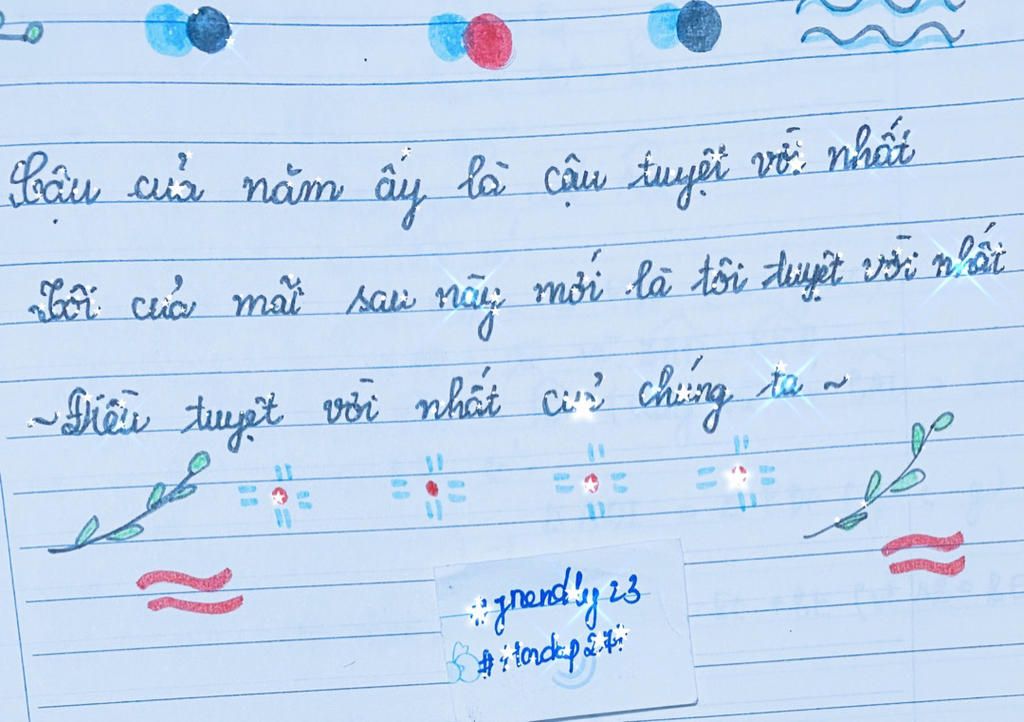 Cậu của năm ấy là cậu tuyệt vời nhất
Tôi của mãi sau này mới là tôi tuyệt vời nhất
~Điều tuyệt vời nhất của chúng ta~